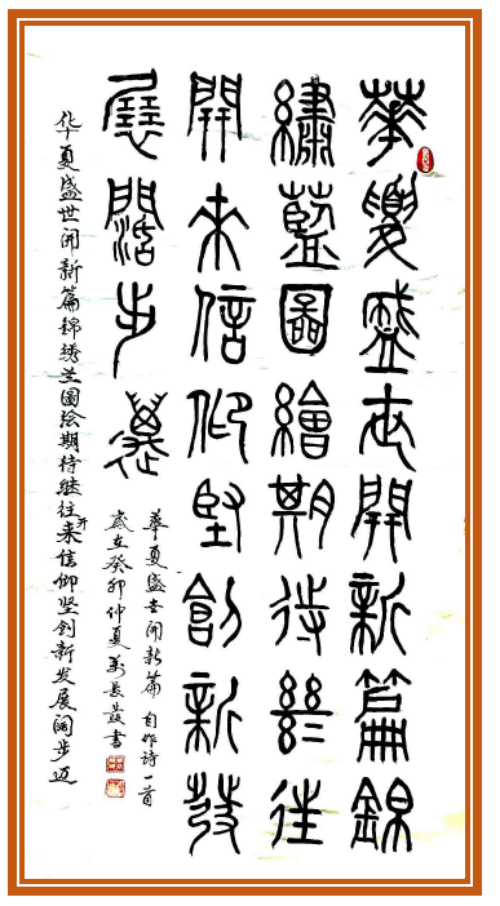 華夏盛世開新篇錦
繡藍圖繪期待繼往
開來信仰堅創新發
展闊步邁
華夏盛世開新篇 自作詩一首
歲在癸卯仲夏 萬長發書
化华夏盛世開新篇錦绣兰圖绘期待继往开来信仰坚创新发展阔步迈